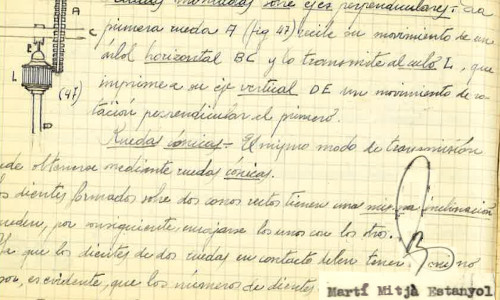 Ruedas montadas sobre ejes perpendiculares.- La
primera rueda A (fig 47) recibe su movimiento de un
árbol horizontal BC y lo transmite al cubo L, que
imprime a su eje vertical DE un movimiento de ro-
tación perpendicular al primero.
A
C
L
D
(47)
Ruedas cónicas.- El mismo modo de transmisión
ede obtenerse mediante ruedas cónicas.
os dientes formados sobre dos conos rectos tienen una misma inclinación
ueden, por consiguiente engajarse los unos con los otros.
Ya que los dientes de dos ruedas en contacto deben tener
son, es evidente, que los números de dientes
Martí Mitjà Estanyol